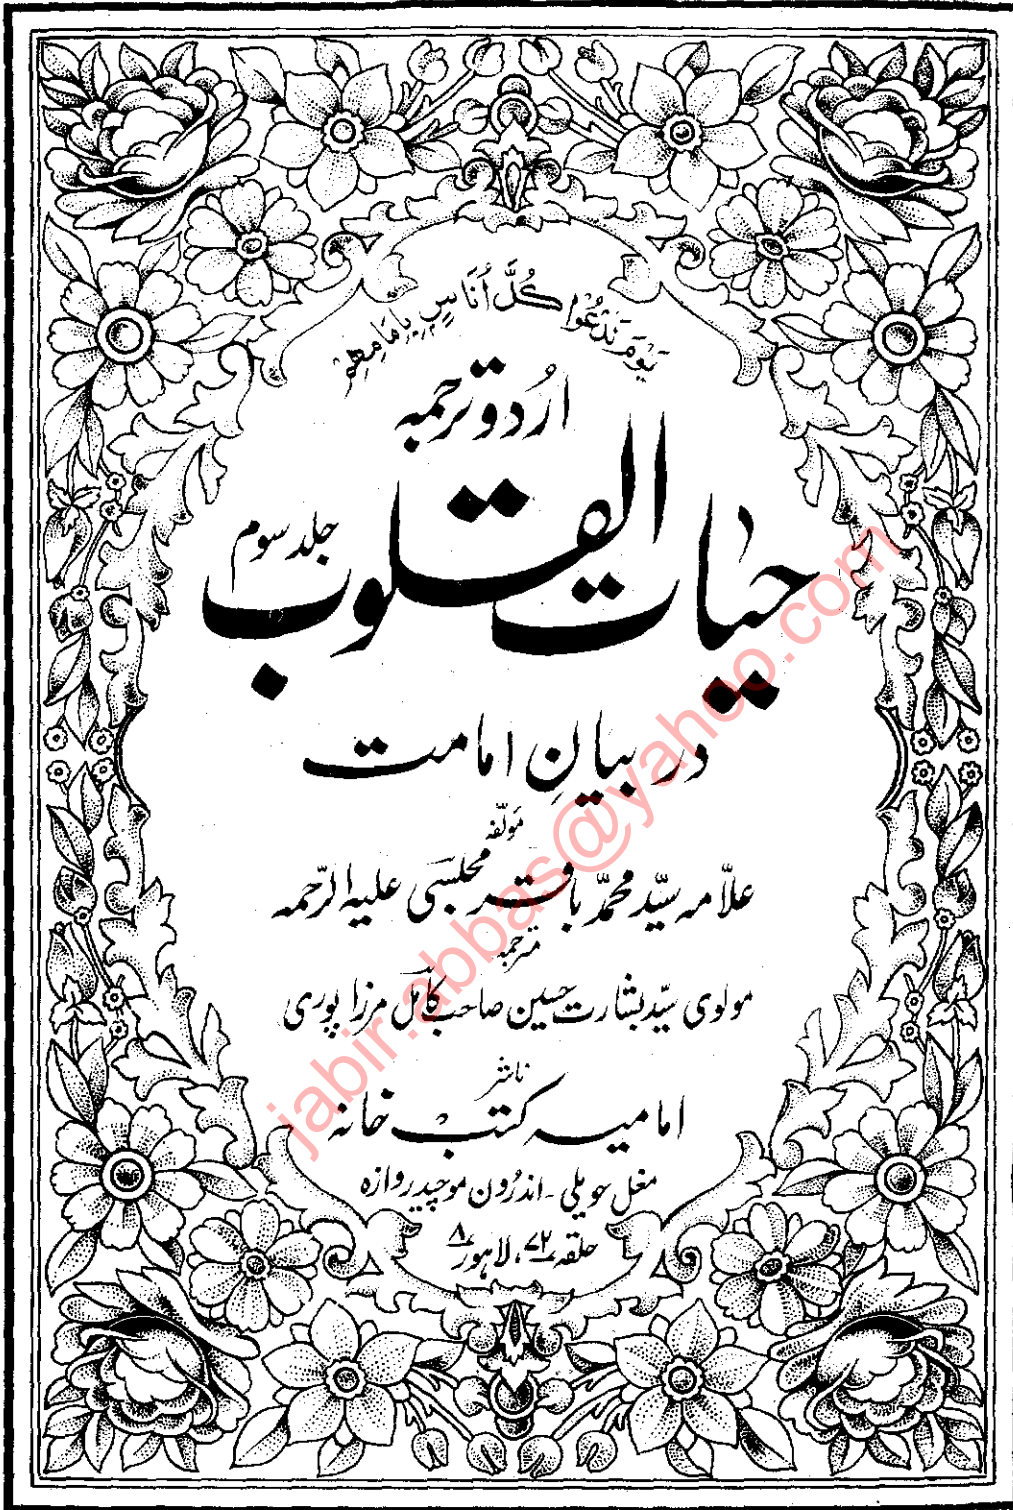 يَوْمَ نَدْعُوْا كُلَّ اُنَاسٍ بِاِمَامِهِمْ
اُردو ترجمہ
حیات القلوب
جلد سوم
در بیانِ امامت
مؤلّفہ
علّامہ سیّد محمّد باقر مجلسی علیہ الرّحمہ
مترجمہ
مولوی سیّد بشارت حسین صاحب کامل مرزا پوری
ناشر
امامیہ کتب خانہ
مغل حویلی - اندرُون موچیدروازہ
حلقہ ۷۲، لاہور ۸
jabir.abbas@yahoo.com